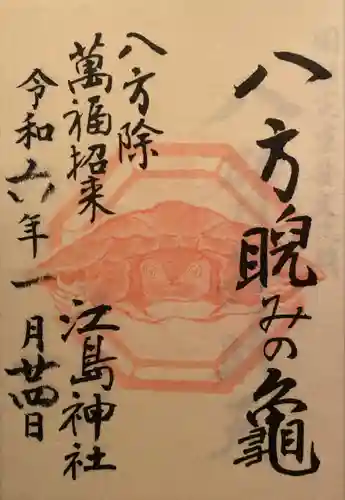 八方睨みの亀
八方除
萬福招来
江島神社
令和六年一月廿四日